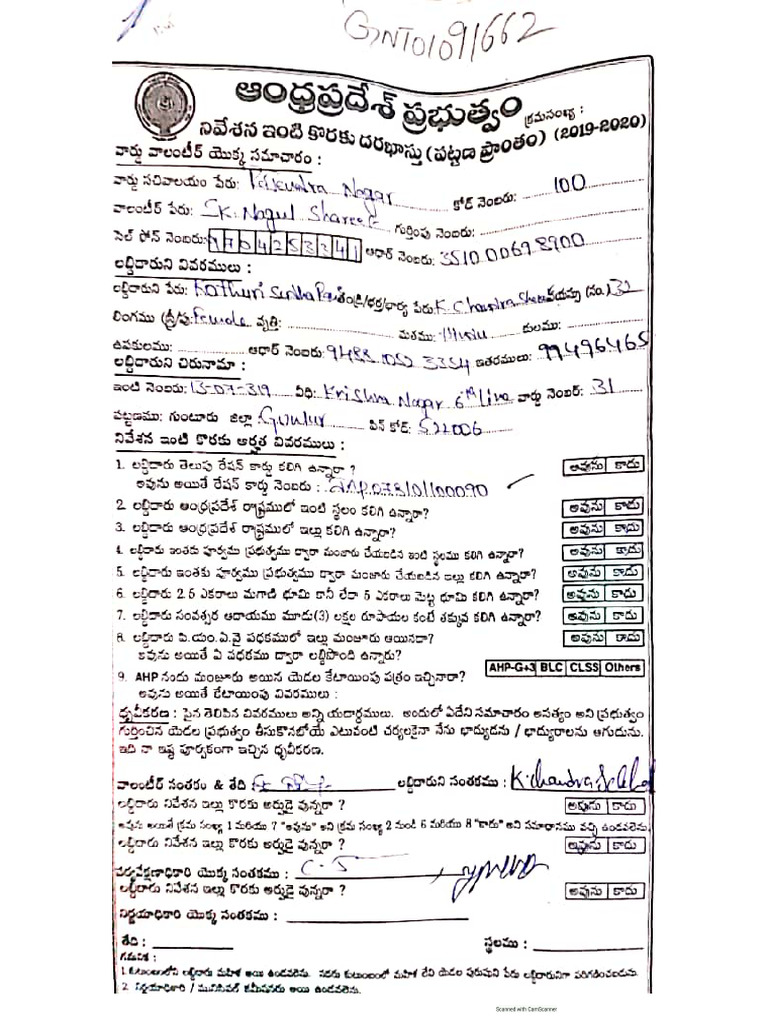 GNT01091662
ఆంధ్రప్రదేశ్ ప్రభుత్వం
క్రమసంఖ్య :
నివేశన ఇంటి కొరకు దరఖాస్తు (పట్టణ ప్రాంతం) (2019-2020)
వార్డు వాలంటీర్ యొక్క సమాచారం :
వార్డు సచివాలయం పేరు: Nagar కోడ్ నెంబరు: 100
వాలంటీర్ పేరు: SK. Nagul Shareef గుర్తింపు నెంబరు:
సెల్ ఫోన్ నెంబరు: 9704253341 ఆధార్ నెంబరు: 3510 0069 8900
లబ్దిదారుని వివరములు :
లబ్దిదారుని పేరు: Kothuri తండ్రి/భర్త/భార్య పేరు: K. Chandra వయస్సు (సం.) 32
లింగము (స్త్రీ/పు: Female వృత్తి: మతము: కులము:
ఉపకులము: ఆధార్ నెంబరు: 9488 1052 3354 ఇతరములు: 99496465
లబ్దిదారుని చిరునామా :
ఇంటి నెంబరు: 13-07-319 వీధి: Krishna Nagar 6th Line వార్డు నెంబర్: 31
పట్టణము: గుంటూరు జిల్లా: Guntur పిన్ కోడ్: 522006
నివేశన ఇంటి కొరకు అర్హత వివరములు :
1. లబ్దిదారు తెలుపు రేషన్ కార్డు కలిగి ఉన్నారా ? అవును కాదు
అవును అయితే రేషన్ కార్డు నెంబరు :
2. లబ్దిదారు ఆంధ్రప్రదేశ్ రాష్ట్రములో ఇంటి స్థలం కలిగి ఉన్నారా? అవును కాదు
3. లబ్దిదారు ఆంధ్రప్రదేశ్ రాష్ట్రములో ఇల్లు కలిగి ఉన్నారా? అవును కాదు
4. లబ్దిదారు ఇంతకు పూర్వము ప్రభుత్వము ద్వారా మంజూరు చేయబడిన ఇంటి స్థలము కలిగి ఉన్నారా? అవును కాదు
5. లబ్దిదారు ఇంతకు పూర్వము ప్రభుత్వము ద్వారా మంజూరు చేయబడిన ఇల్లు కలిగి ఉన్నారా? అవును కాదు
6. లబ్దిదారు 2.5 ఎకరాలు మగాణి భూమి కానీ లేదా 5 ఎకరాలు మెట్ట భూమి కలిగి ఉన్నారా? అవును కాదు
7. లబ్దిదారు సంవత్సర ఆదాయము మూడు(3) లక్షల రూపాయల కంటే తక్కువ కలిగి ఉన్నారా? అవును కాదు
8. లబ్దిదారు పి.యం.ఏ.వై పథకములో ఇల్లు మంజూరు ఆయినదా? అవును కాదు
అవును అయితే ఏ పథకము ద్వారా లబ్దిపొంది ఉన్నారు?
AHP-G+3 BLC CLSS Others
9. AHP నందు మంజూరు అయిన యెడల కేటాయింపు పత్రం ఇచ్చినారా?
అవును అయితే కేటాయింపు వివరములు :
ధృవీకరణ : పైన తెలిపిన వివరములు అన్ని యదార్థములు. అందులో ఏదేని సమాచారం అసత్యం అని ప్రభుత్వం
గుర్తించిన యెడల ప్రభుత్వం తీసుకొనబోయే ఎటువంటి చర్యలకైనా నేను బాధ్యుడను / బాధ్యురాలను ఆగుదును.
ఇది నా ఇష్ట పూర్వకంగా ఇచ్చిన ధృవీకరణ.
వాలంటీర్ సంతకం & తేది లబ్దిదారుని సంతకము : K. chandra
లబ్దిదారు నివేశన ఇల్లు కొరకు అర్హుడై వున్నరా ? అవును కాదు
అవును అయితే క్రమ సంఖ్య 1 మరియు 7 "అవును" అని క్రమ సంఖ్య 2 నుండి 6 మరియు 8 "కాదు" అని సమాధానము వచ్చి ఉండవలెను.
లబ్దిదారు నివేశన ఇల్లు కొరకు అర్హుడై వున్నరా ? అవును కాదు
పర్యవేక్షణాధికారి యొక్క సంతకము :
లబ్దిదారు నివేశన ఇల్లు కొరకు అర్హుడై వున్నరా ? అవును కాదు
నిర్ణయాధికారి యొక్క సంతకము :
తేది : స్థలము :
గమనిక :
1. కుటుంబంలోని లబ్దిదారు మహిళ అయి ఉండవలెను. సదరు కుటుంబంలో మహిళ లేని యెడల పురుషుని పేరు లబ్దిదారునిగా పరిగణించబడును.
2. నిర్ణయాధికారి / మునిసిపల్ కమీషనరు అయి ఉండవలెను.
Scanned with CamScanner